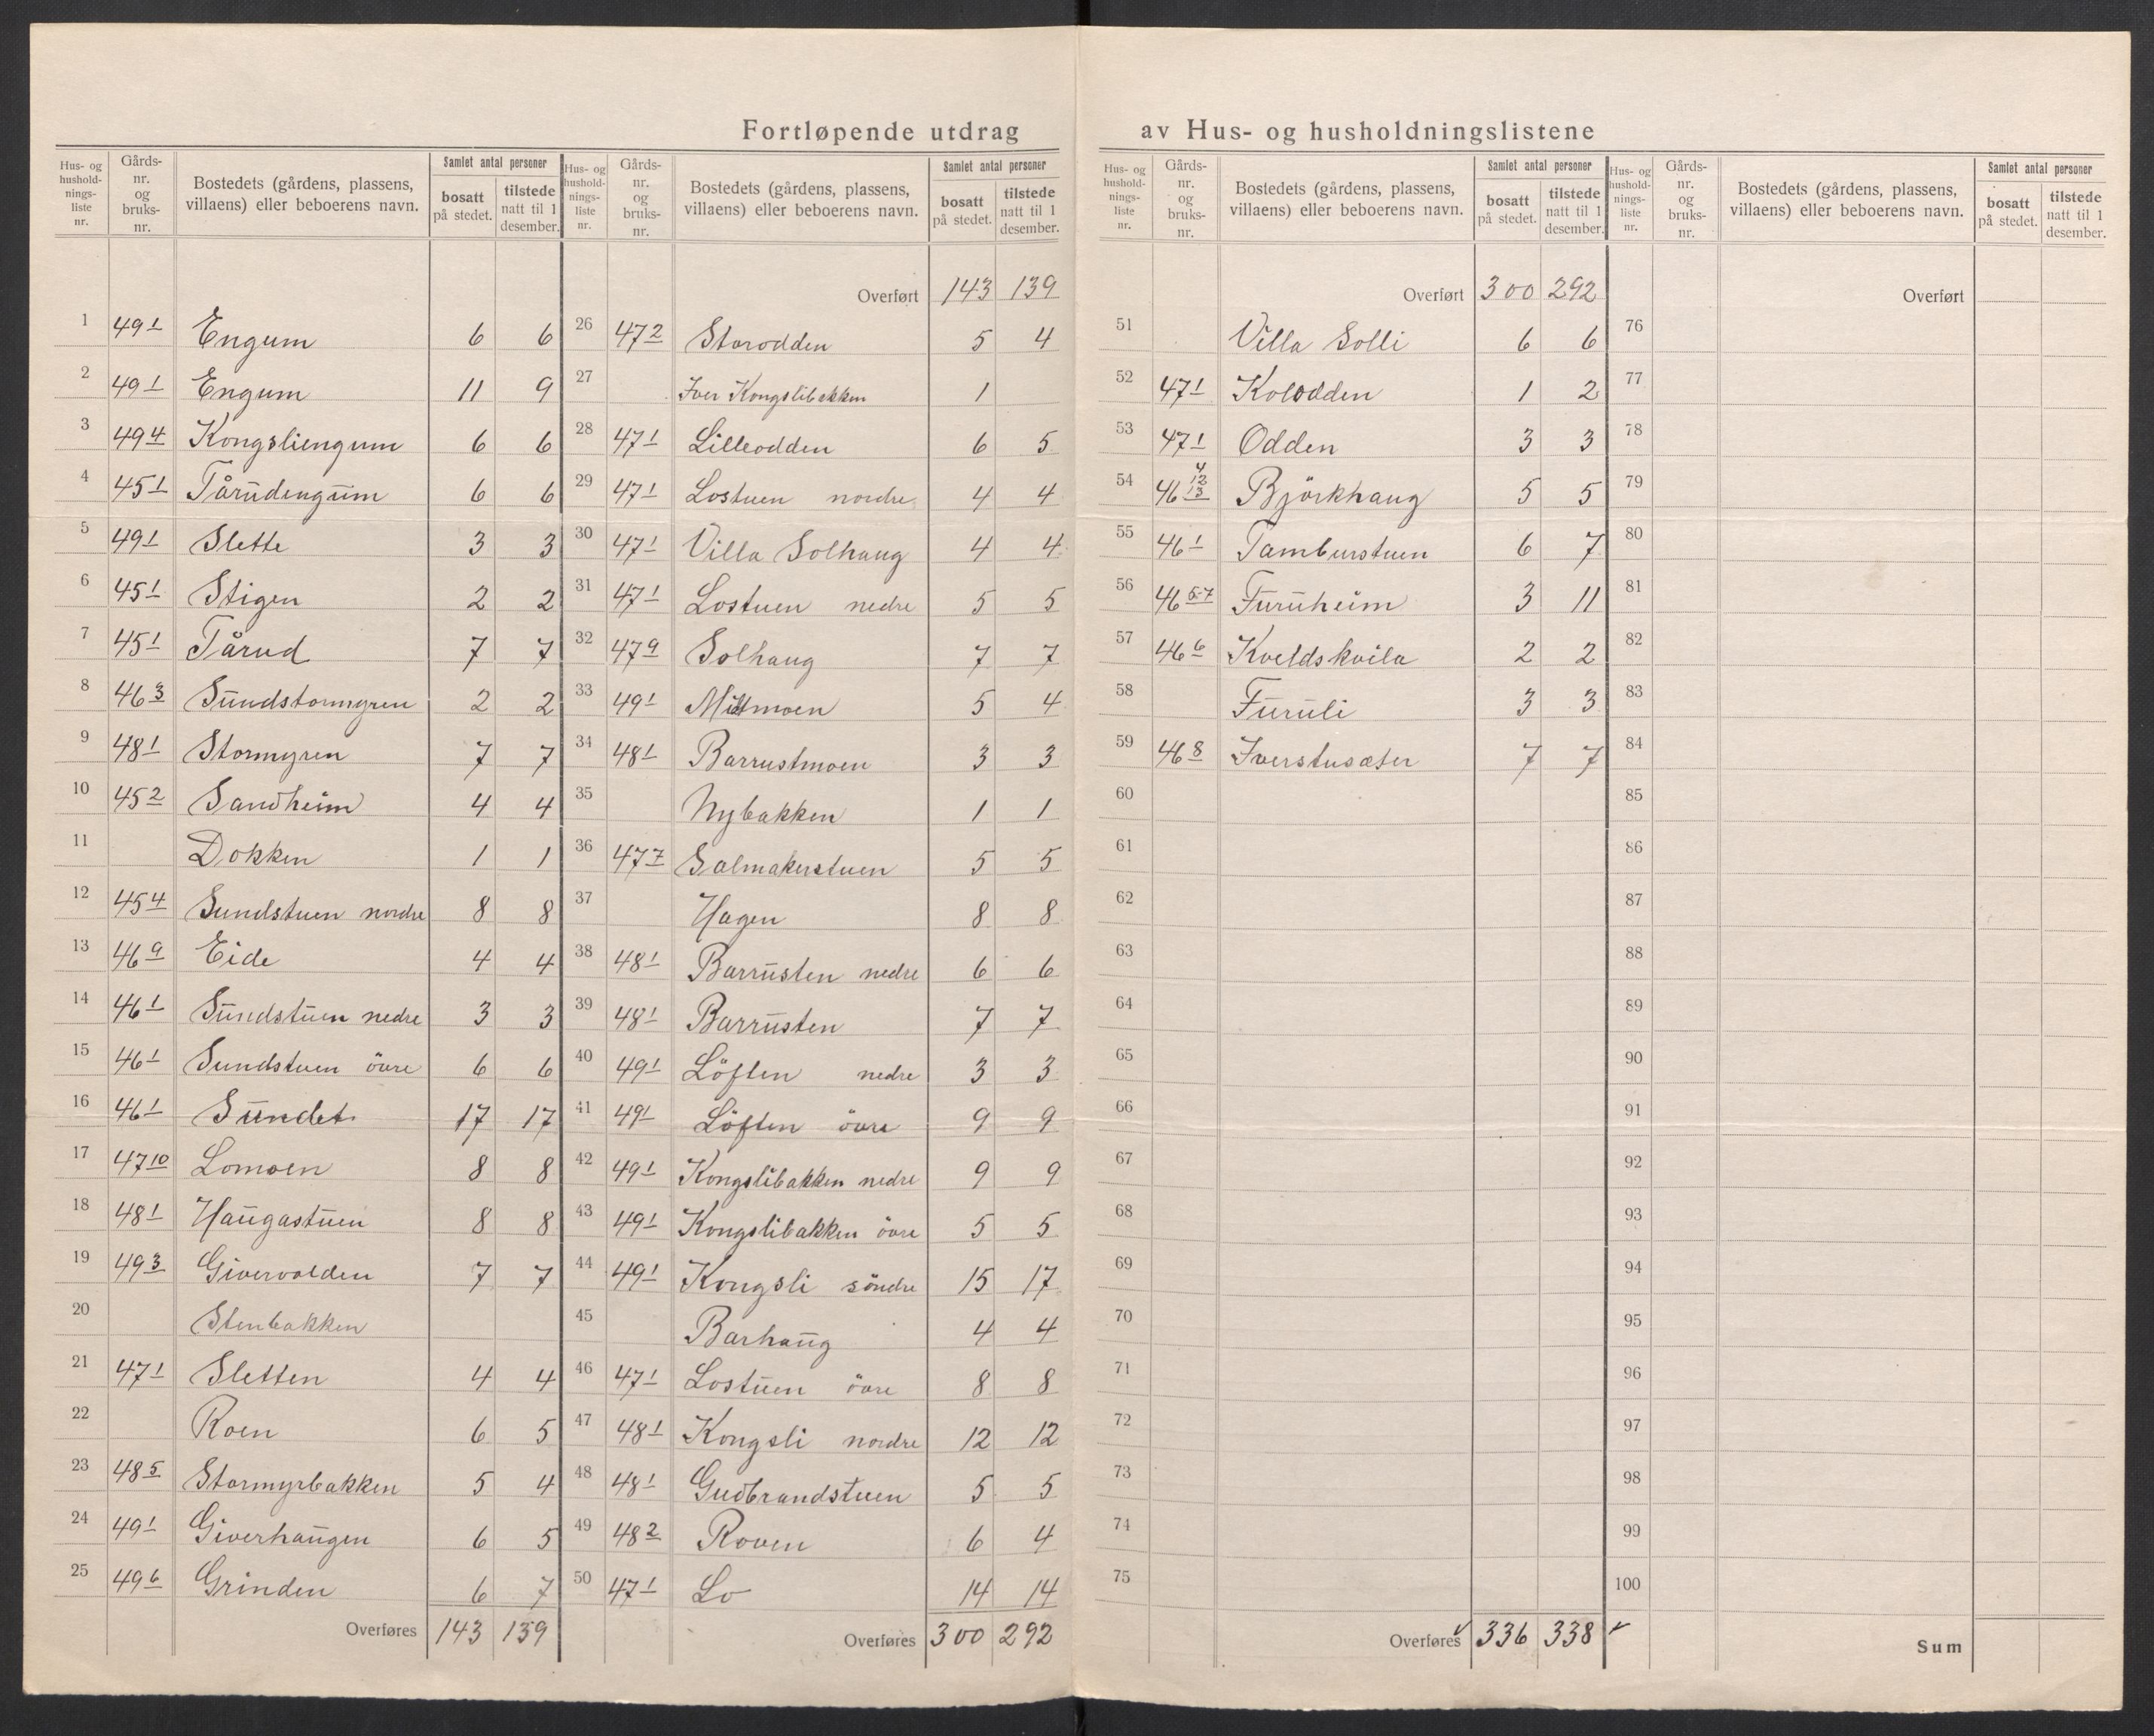 Fortløpende utdrag av Hus- og husholdningslistene
Hus- og husholdningsliste nr. | Gårds-nr. og bruks-nr. | Bostedets (gårdens, plassens, villaens) eller beboerens navn. | Samlet antal personer: bosatt på stedet. | tilstede natt til 1 desember.
1 49 1 Engum 6 6
2 49 1 Engum 11 9
3 49 4 Kongsliengum 6 6
4 45 1 Tårudengum 6 6
5 49 1 Slette 3 3
6 45 1 Stigen 2 2
7 45 1 Tårud 7 7
8 46 3 Sundstormyren 2 2
9 48 1 Stormyren 7 7
10 45 2 Sandheim 4 4
11 Dokken 1 1
12 45 4 Sundstuen nordre 8 8
13 46 9 Eide 4 4
14 46 1 Sundstuen nedre 3 3
15 46 1 Sundstuen övre 6 6
16 46 1 Sundet 17 17
17 47 10 Lomoen 8 8
18 48 1 Haugastuen 8 8
19 49 3 Givervolden 7 7
20 Stenbakken
21 47 1 Sletten 4 4
22 Roen 6 5
23 48 5 Stormyrbakken 5 4
24 49 1 Giverhaugen 6 5
25 49 6 Grinden 6 7
Overføres 143 139
Hus- og husholdningsliste nr. | Gårds-nr. og bruks-nr. | Bostedets (gårdens, plassens, villaens) eller beboerens navn. | Samlet antal personer: bosatt på stedet. | tilstede natt til 1 desember.
Overført 143 139
26 47 2 Storodden 5 4
27 Iver Kongslibakken 1
28 47 1 Lilleodden 6 5
29 47 1 Lostuen nordre 4 4
30 47 1 Villa Solhaug 4 4
31 47 1 Lostuen nedre 5 5
32 47 9 Solhaug 7 7
33 49 1 Mittmoen 5 4
34 48 1 Barrustmoen 3 3
35 Nybakken 1 1
36 47 7 Salmakerstuen 5 5
37 Hagen 8 8
38 48 1 Barrusten nedre 6 6
39 48 1 Barrusten 7 7
40 49 1 Löften nedre 3 3
41 49 1 Löften övre 9 9
42 49 1 Kongslibakken nedre 9 9
43 49 1 Kongslibakken övre 5 5
44 49 1 Kongsli söndre 15 17
45 Barhaug 4 4
46 47 1 Lostuen övre 8 8
47 48 1 Kongsli nordre 12 12
48 48 1 Gudbrandstuen 5 5
49 48 2 Roven 6 4
50 47 1 Lo 14 14
Overføres 300 292
Hus- og husholdningsliste nr. | Gårds-nr. og bruks-nr. | Bostedets (gårdens, plassens, villaens) eller beboerens navn. | Samlet antal personer: bosatt på stedet. | tilstede natt til 1 desember.
Overført 300 292
51 Villa Solli 6 6
52 47 1 Kolodden 1 2
53 47 1 Odden 3 3
54 46 4 12 13 Björkhaug 5 5
55 46 1 Tamburstuen 6 7
56 46 5-7 Furuheim 3 11
57 46 6 Kveldskvila 2 2
58 Furuli 3 3
59 46 8 Iverstusæter 7 7
60
61
62
63
64
65
66
67
68
69
70
71
72
73
74
75
Overføres 336 338
Hus- og husholdningsliste nr. | Gårds-nr. og bruks-nr. | Bostedets (gårdens, plassens, villaens) eller beboerens navn. | Samlet antal personer: bosatt på stedet. | tilstede natt til 1 desember.
Overført
76
77
78
79
80
81
82
83
84
85
86
87
88
89
90
91
92
93
94
95
96
97
98
99
100
Sum